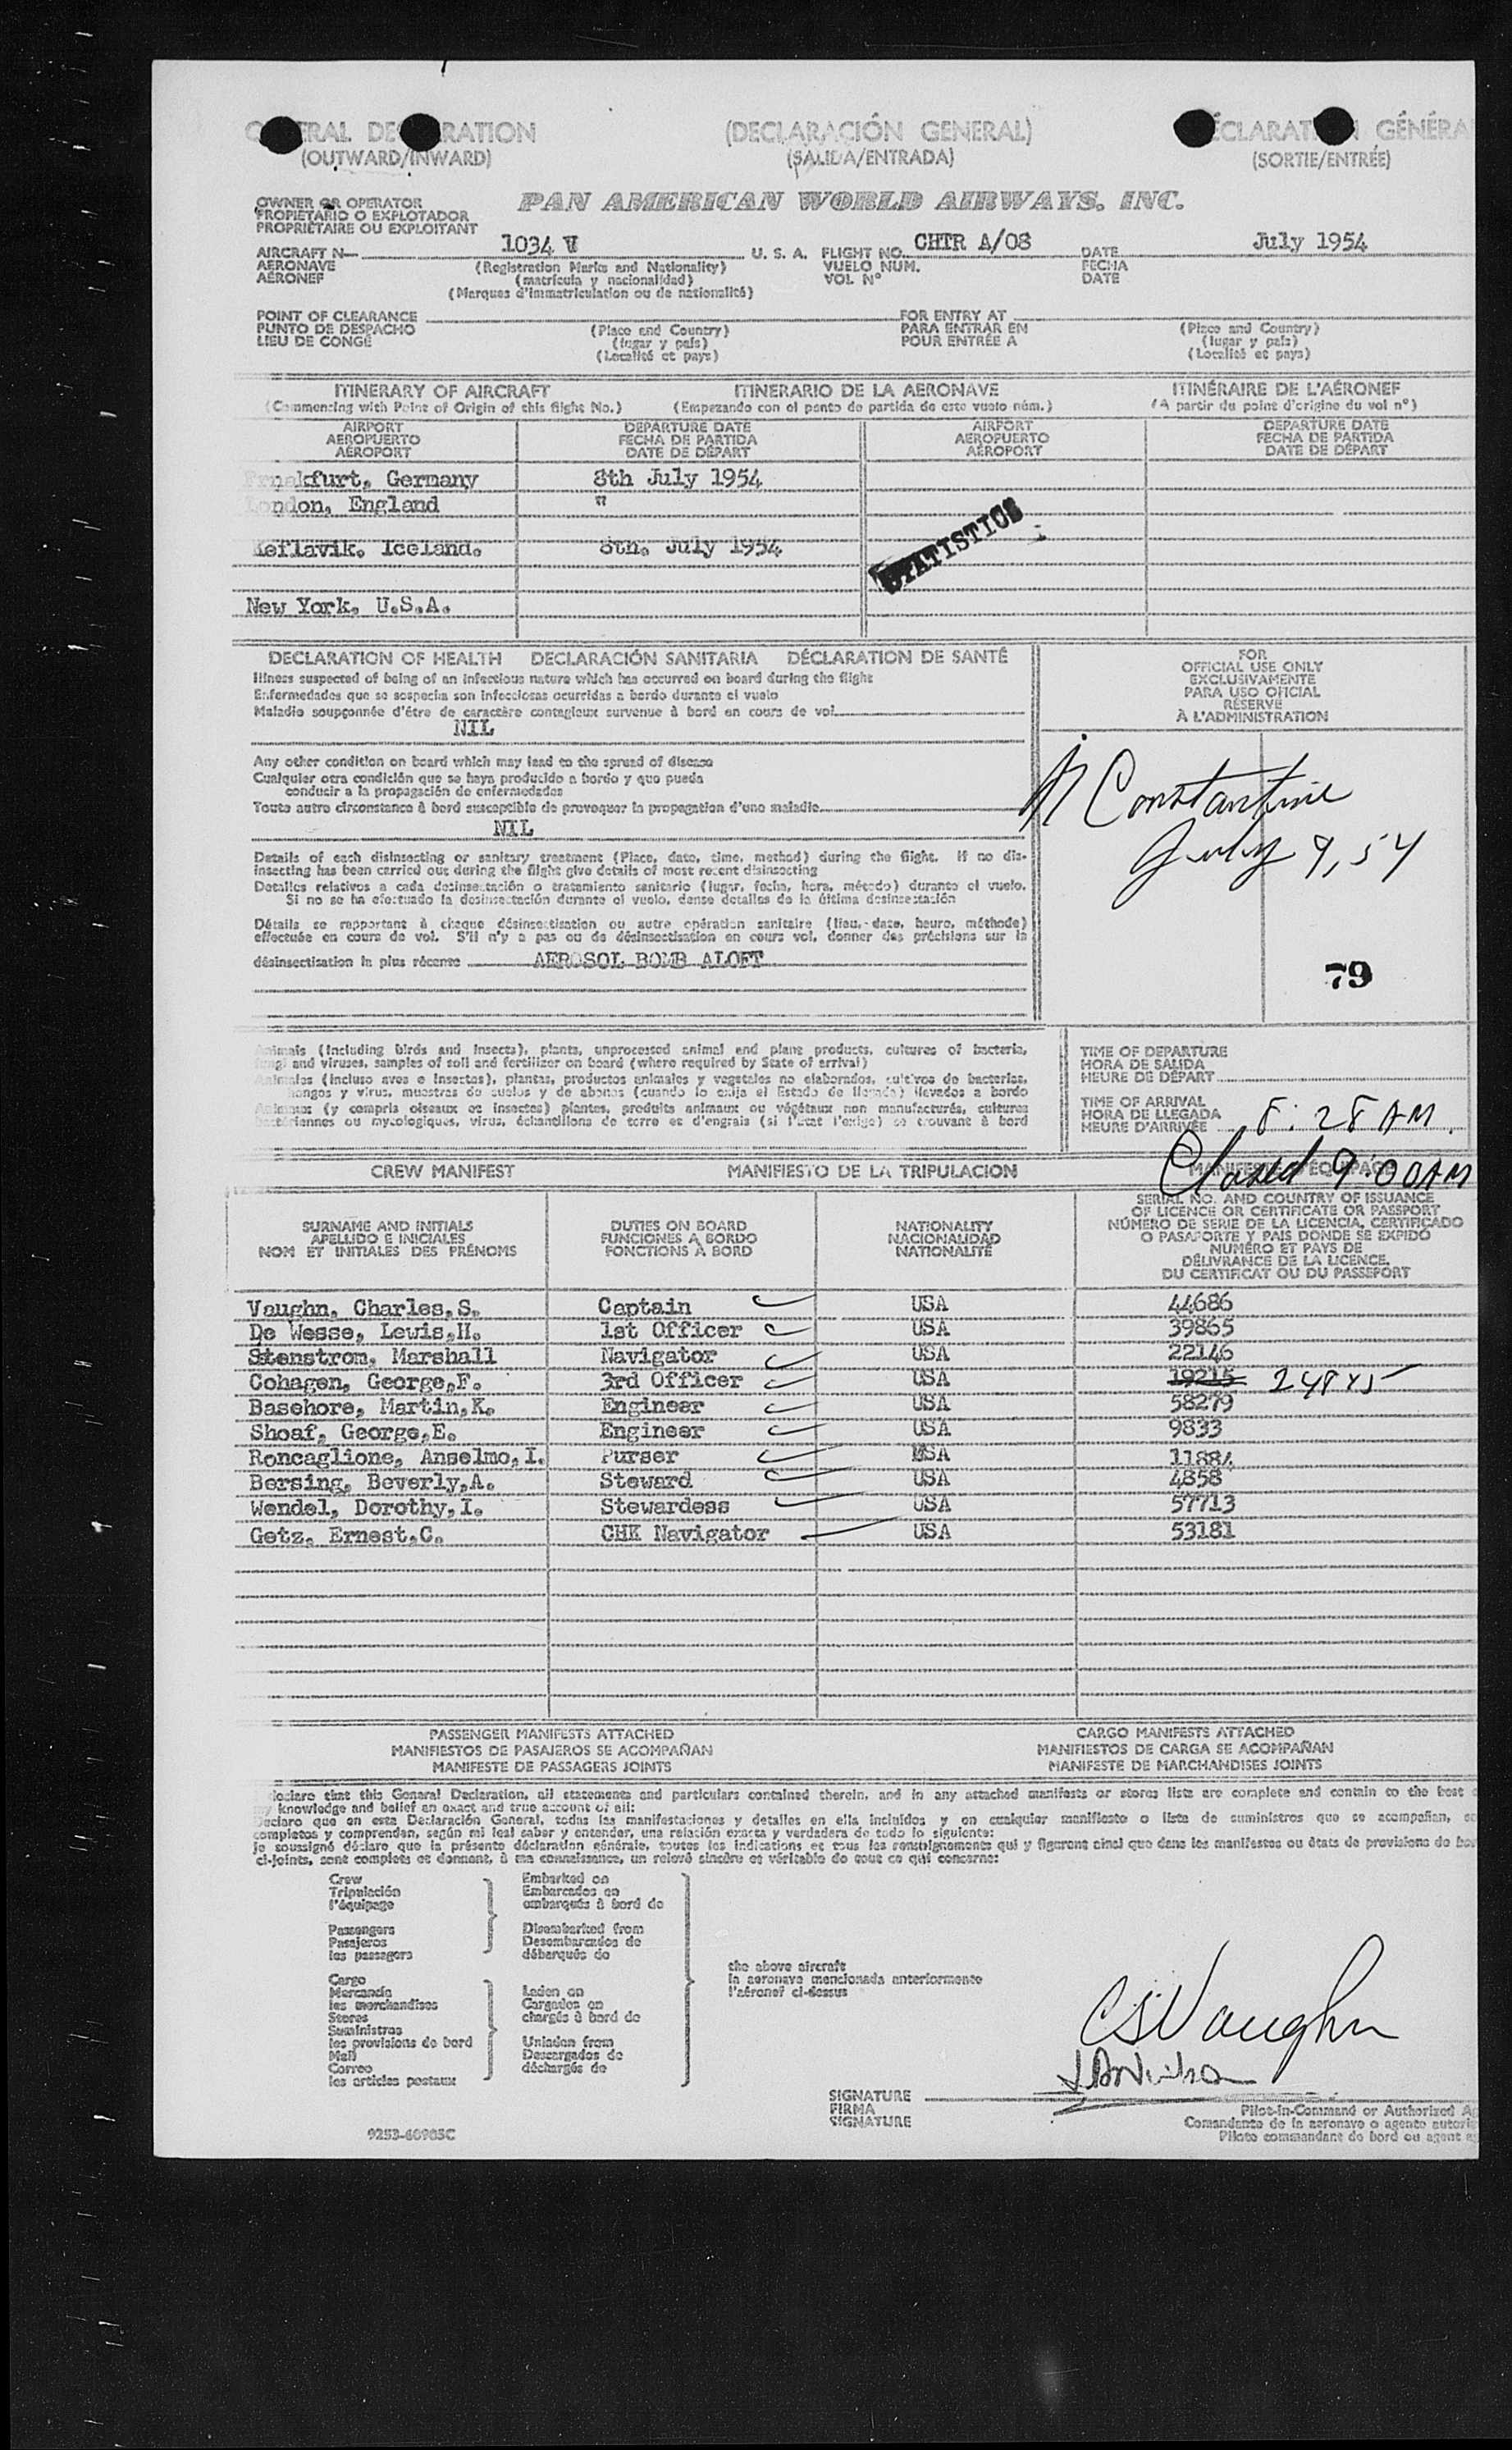 GENERAL DECLARATION (DECLARACIÓN GENERAL) DÉCLARATION GÉNÉRA
(OUTWARD/INWARD) (SALIDA/ENTRADA) (SORTIE/ENTRÉE)
OWNER OR OPERATOR
PROPIETARIO O EXPLOTADOR
PROPRIÉTAIRE OU EXPLOITANT
PAN AMERICAN WORLD AIRWAYS, INC.
AIRCRAFT N— 1034 V U. S. A. FLIGHT NO. CHTR A/08 DATE July 1954
AERONAVE (Registration Marks and Nationality) VUELO NUM. FECHA
AÉRONEF (matrícula y nacionalidad) VOL Nº DATE
(Marques d'immatriculation ou de nationalité)
POINT OF CLEARANCE FOR ENTRY AT
PUNTO DE DESPACHO (Place and Country) PARA ENTRAR EN (Place and Country)
LIEU DE CONGÉ (lugar y país) POUR ENTRÉE A (lugar y país)
(Localité et pays) (Localité et pays)
ITINERARY OF AIRCRAFT ITINERARIO DE LA AERONAVE ITINÉRAIRE DE L'AÉRONEF
(Commencing with Point of Origin of this flight No.) (Empezando con el punto de partida de este vuelo núm.) (A partir du point d'origine du vol nº)
AIRPORT DEPARTURE DATE AIRPORT DEPARTURE DATE
AEROPUERTO FECHA DE PARTIDA AEROPUERTO FECHA DE PARTIDA
AÉROPORT DATE DE DÉPART AÉROPORT DATE DE DÉPART
Frnakfurt, Germany 8th July 1954
London, England "
STATISTICS
Keflavik. Iceland. 8th. July 1954
New York, U.S.A.
DECLARATION OF HEALTH DECLARACIÓN SANITARIA DÉCLARATION DE SANTÉ
Illness suspected of being of an infectious nature which has occurred on board during the flight
Enfermedades que se sospecha son infecciosas ocurridas a bordo durante el vuelo
Maladie soupçonnée d'être de caractère contagieux survenue à bord en cours de vol
NIL
Any other condition on board which may lead to the spread of disease
Cualquier otra condición que se haya producido a bordo y que pueda
conducir a la propagación de enfermedades
Toute autre circonstance à bord susceptible de provoquer la propagation d'une maladie
NIL
Details of each disinsecting or sanitary treatment (Place, date, time, method) during the flight. If no dis-
insecting has been carried out during the flight give details of most recent disinsecting
Detalles relativos a cada desinsectación o tratamiento sanitario (lugar, fecha, hora, método) durante el vuelo.
Si no se ha efectuado la desinsectación durante el vuelo, dense detalles de la última desinsectación
Détails se rapportant à chaque désinsectisation ou autre opération sanitaire (lieu, date, heure, méthode)
effectuée en cours de vol. S'il n'y a pas eu de désinsectisation en cours vol, donner des précisions sur la
désinsectisation la plus récente AEROSOL BOMB ALOFT
FOR
OFFICIAL USE ONLY
EXCLUSIVAMENTE
PARA USO OFICIAL
RÉSERVÉ
À L'ADMINISTRATION
N Constantine
July 9, 54
79
Animals (including birds and insects), plants, unprocessed animal and plant products, cultures of bacteria,
fungi and viruses, samples of soil and fertilizer on board (where required by State of arrival)
Animales (incluso aves e insectos), plantas, productos animales y vegetales no elaborados, cultivos de bacterias,
hongos y virus, muestras de suelos y de abonos (cuando lo exija el Estado de llegada) llevados a bordo
Animaux (y compris oiseaux et insectes) plantes, produits animaux ou végétaux non manufacturés, cultures
bactériennes ou mycologiques, virus, échantillons de terre et d'engrais (si l'état l'exige) se trouvant à bord
TIME OF DEPARTURE
HORA DE SALIDA
HEURE DE DÉPART
TIME OF ARRIVAL
HORA DE LLEGADA
HEURE D'ARRIVÉE 8:28 AM.
Closed 9:00 AM
CREW MANIFEST MANIFIESTO DE LA TRIPULACION MANIFESTE D'ÉQUIPAGE
SURNAME AND INITIALS DUTIES ON BOARD NATIONALITY
APELLIDO E INICIALES FUNCIONES A BORDO NACIONALIDAD
NOM ET INITIALES DES PRÉNOMS FONCTIONS À BORD NATIONALITÉ
SERIAL NO. AND COUNTRY OF ISSUANCE
OF LICENCE OR CERTIFICATE OR PASSPORT
NÚMERO DE SERIE DE LA LICENCIA, CERTIFICADO
O PASAPORTE Y PAIS DONDE SE EXPIDÓ
NUMÉRO ET PAYS DE
DÉLIVRANCE DE LA LICENCE,
DU CERTIFICAT OU DU PASSEPORT
Vaughn, Charles,S. Captain USA 44686
De Wesse, Lewis,H. 1st Officer USA 39865
Stenstrom, Marshall Navigator USA 22146
Cohagen, George,F. 3rd Officer USA 19215
Basehore, Martin,K. Engineer USA 58279
Shoaf, George,E. Engineer USA 9833
Roncaglione, Anselmo,I. Purser USA 11884
Bersing, Beverly,A. Steward USA 4858
Wendel, Dorothy,I. Stewardess USA 57713
Getz, Ernest,C. CHK Navigator USA 53181
PASSENGER MANIFESTS ATTACHED CARGO MANIFESTS ATTACHED
MANIFIESTOS DE PASAJEROS SE ACOMPAÑAN MANIFIESTOS DE CARGA SE ACOMPAÑAN
MANIFESTE DE PASSAGERS JOINTS MANIFESTE DE MARCHANDISES JOINTS
declare that this General Declaration, all statements and particulars contained therein, and in any attached manifests or stores lists are complete and contain to the best
my knowledge and belief an exact and true account of all:
Declaro que en esta Declaración General, todas las manifestaciones y detalles en ella incluídos y en cualquier manifiesto o lista de suministros que se acompañan,
completos y comprenden, según mi leal saber y entender, una relación exacta y verdadera de todo lo siguiente:
je soussigné déclare que la présente déclaration générale, toutes les indications et tous les renseignements qui y figurent ainsi que dans les manifestes ou états de provisions de
ci-joints, sont complets et donnent, à ma connaissance, un relevé sincère et véritable de tout ce qui concerne:
Crew Embarked on
Tripulación Embarcados en
l'équipage embarqués à bord de
Passengers Disembarked from
Pasajeros Desembarcados de
les passagers débarqués de
the above aircraft
la aeronave mencionada anteriormente
l'aéronef ci-dessus
Cargo
Mercancía Laden on
les marchandises Cargados en
Stores chargés à bord de
Suministros
les provisions de bord Unladen from
Mail Descargados de
Correo déchargés de
les articles postaux
CSVaughn
SIGNATURE
FIRMA
SIGNATURE
Pilot-in-Command or Authorized
Comandante de la aeronave o agente
Pilote commandant de bord ou agent
9253-60905C